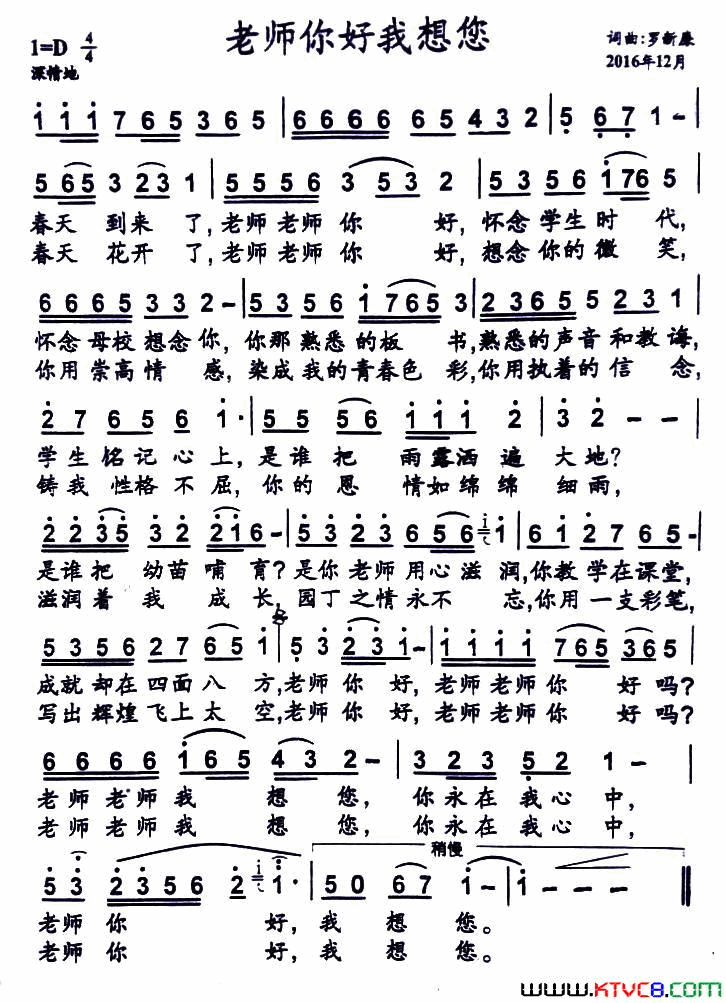 老师你好我想您
1=D 4/4
词曲:罗新康
深情地
2016年12月
1 1 1 7 6 5 3 6 5 | 6 6 6 6 6 5 3 2 | 5 6 7 1 – |
5 6 5 3 2 3 1 | 5 5 5 6 3 5 3 2 | 5 3 5 6 1 7 6 5 |
春天 到来 了,老师老师你 好,怀念学生时 代,
春天 花开 了,老师老师你 好,想念你的微 笑,
6 6 6 5 3 3 2 – | 5 3 5 6 1 7 6 5 3 | 2 3 6 5 5 2 3 1 |
怀念母校想念你,你那熟悉的板 书,熟悉的声音和教诲,
你用崇高情 感,染成我的青春色 彩,你用执着的信 念,
2 7 6 5 6 1· | 5 5 5 6 1 1 1 2 | 3 2 – – |
学生铭记心上,是谁把 雨露洒遍 大地?
铸我 性格不屈,你的恩 情如绵绵 细雨,
2 2 3 5 3 2 2 1 6 – | 5 3 2 3 6 5 1 1 | 6 1 2 7 6 5 – |
是谁把 幼苗哺 育?是你老师用心滋 润,你教学在课堂,
滋润着 我 成 长,园丁之情永不 忘,你用一支彩笔,
5 3 5 6 2 7 6 5 1 | 5 3 2 3 1 – | 1 1 1 1 7 6 5 3 6 5 |
成就却在四面八 方,老师你 好,老师老师你 好吗?
写出辉煌飞上太 空,老师你 好,老师老师你 好吗?
6 6 6 6 1 6 5 4 3 2 – | 3 2 2 3 5 2 1 – |
老师老师我 想 您, 你永在我心中,
老师老师我 想 您, 你永在我心中,
稍慢
5 3 2 3 5 6 2 1 1· | 5 0 6 7 1 – | 1 – – – ||
老师你 好,我 想 您。
老师你 好,我 想 您。
www.KTVC8.com